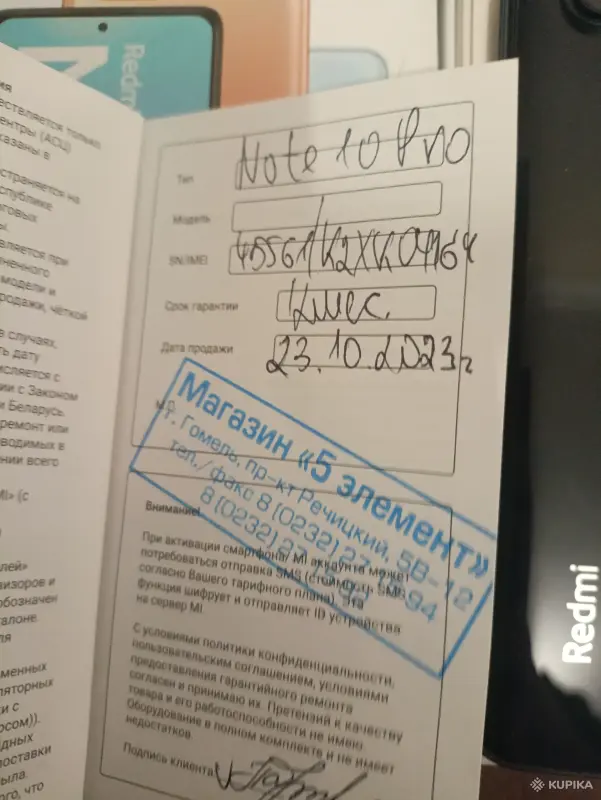 Redmi
ия
ествляется только
ентры (АСЦ)
казаны в
остраняется на
спублике
говых
ы.
вляется при
ненного
модели и
родажи, чёткой
в случаях,
ть дату
исляется с
ии с Законом
и Беларусь.
ремонт или
водимых в
ении всего
MI» (с
елей»
визоров и
обозначен
алоне.
ля
еменных
ляторных
ки с
осом)).
дных
поставки
ыла.
ого, что
Тип Note 10 Pro
Модель
SN/IMEI
Срок гарантии
Дата продажи 23.10.2023г
М.П.
Магазин «5 элемент»
г. Гомель, пр-кт Речицкий, 5В-12
тел./факс 8 (0232) 2
8 (0232) 2 94
Внимание!
При активации смартфона/ MI аккаунта может
потребоваться отправка SMS (стоимость SMS
согласно Вашего тарифного плана). Эта
функция шифрует и отправляет ID устройства
на сервер MI.
С условиями политики конфиденциальности,
пользовательским соглашением, условиями
предоставления гарантийного ремонта
согласен и принимаю их. Претензий к качеству
товара и его работоспособности не имею.
Оборудование в полном комплекте и не имеет
недостатков.
Подпись клиента
Redmi
KUPIKA